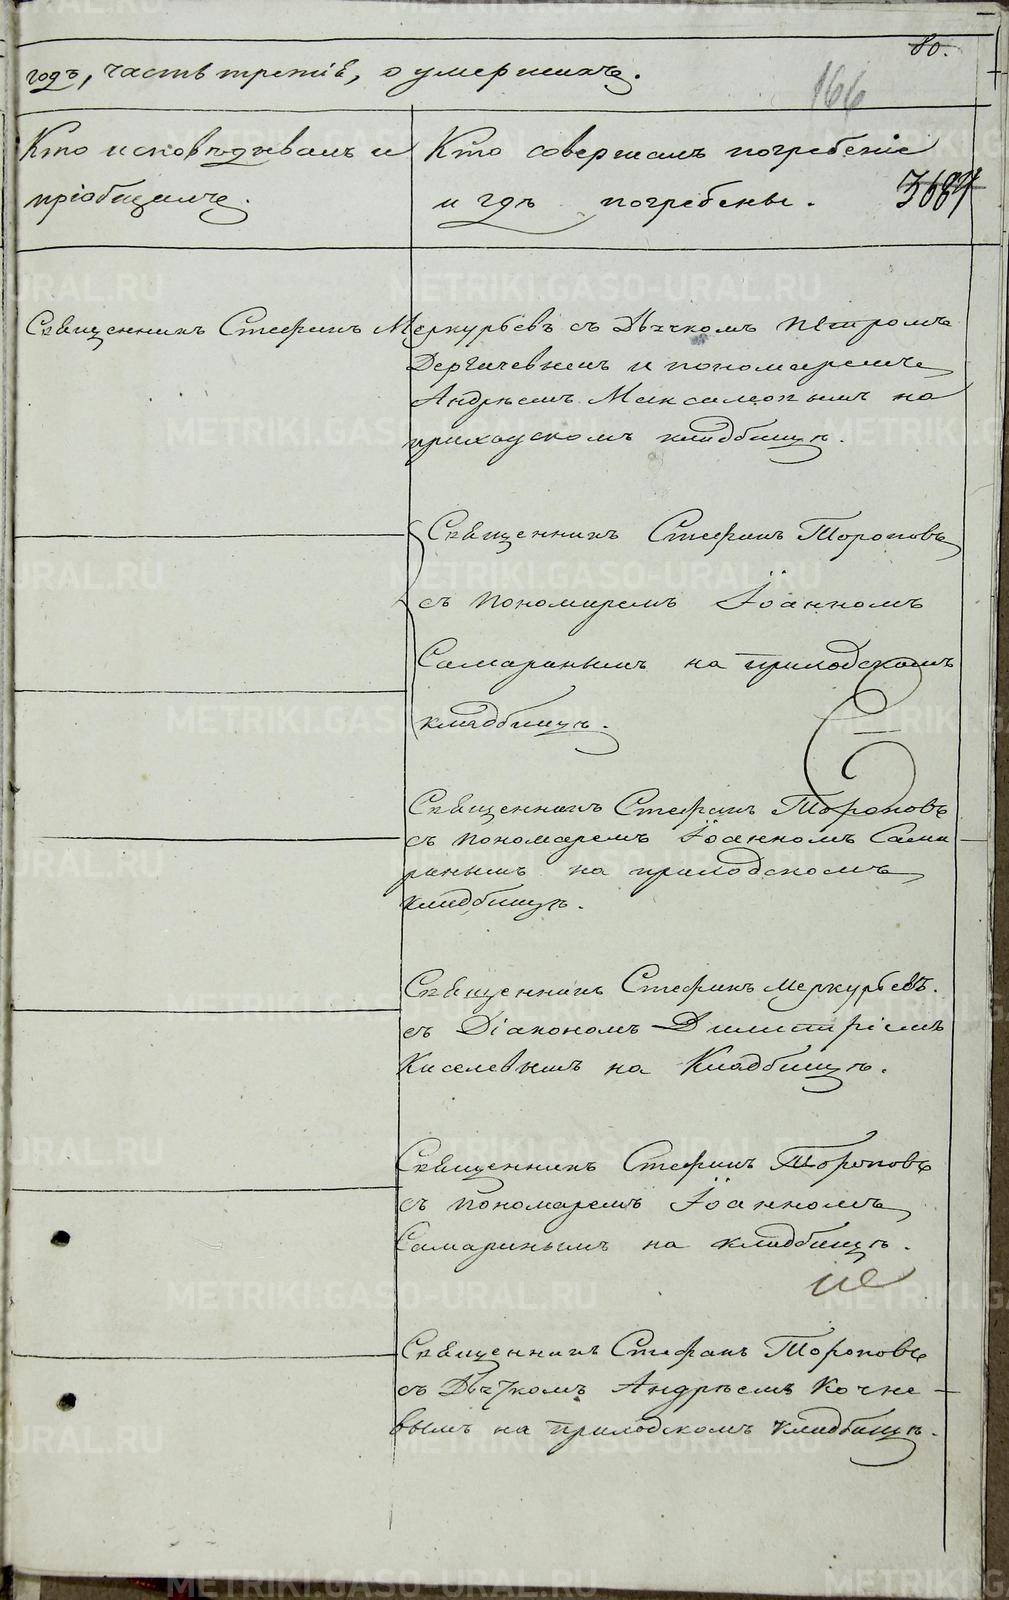 80.
годъ, часть третія, о умершихъ.
166
Кто исповѣдывалъ и
пріобщалъ.
Кто совершалъ погребеніе
и гдѣ погребены.
3687
Священникъ Стефанъ Меркурьевъ съ Дьячкомъ Петромъ
и пономаремъ
Андрѣемъ Максимовымъ на
приходскомъ кладбищѣ.
Священникъ Стефанъ Тороповъ
съ пономаремъ Іоанномъ
Самаринымъ на приходскомъ
кладбищѣ.
Священникъ Стефанъ Тороповъ
съ пономаремъ Іоанномъ Сама
ринымъ на приходскомъ
кладбищѣ.
Священникъ Стефанъ Меркурьевъ.
съ Діакономъ Димитріемъ
Киселевымъ на Кладбищѣ.
Священникъ Стефанъ Тороповъ
съ пономаремъ Іоанномъ
Самаринымъ на кладбищѣ.
Священникъ Стефанъ Тороповъ
съ Дьячкомъ Андрѣемъ Кочне-
вымъ на приходскомъ кладбищѣ.
METRIKI.GASO-URAL.RU